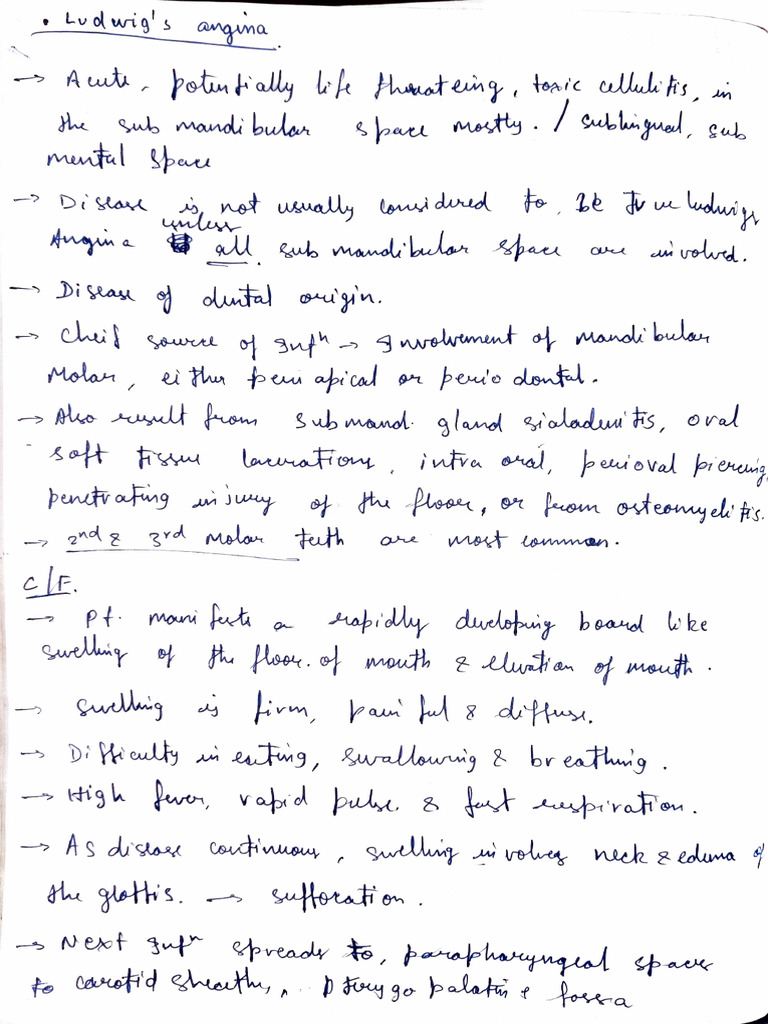 • Ludwig's angina.
→ Acute, potentially life threateing, toxic cellulitis, in
the sub mandibular space mostly. / sublingual, sub
mental space
→ Disease is not usually considered to, be true ludwigs
Angina unless all sub mandibular space are involved.
→ Disease of dental origin.
→ Cheif source of Infⁿ → Involvement of mandibular
Molar, either periapical or periodontal.
→ Also result from submand. gland sialadenitis, oral
soft tissue lacerations, intra oral, perioral piercing,
penetrating injury of the floor, or from osteomyelitis.
→ 2nd & 3rd Molar teeth are most common.
C/F.
→ Pt. manifests a rapidly developing board like
swelling of the floor of mouth & elevation of mouth.
→ Swelling is firm, painful & diffuse.
→ Difficulty in eating, swallowing & breathing.
→ High fever, rapid pulse & fast respiration.
→ As disease continuous, swelling involves neck & edema of
the glottis. → suffocation.
→ Next Infⁿ spreads to, parapharyngeal spaces
to carotid sheaths, pterygo palatine fossa